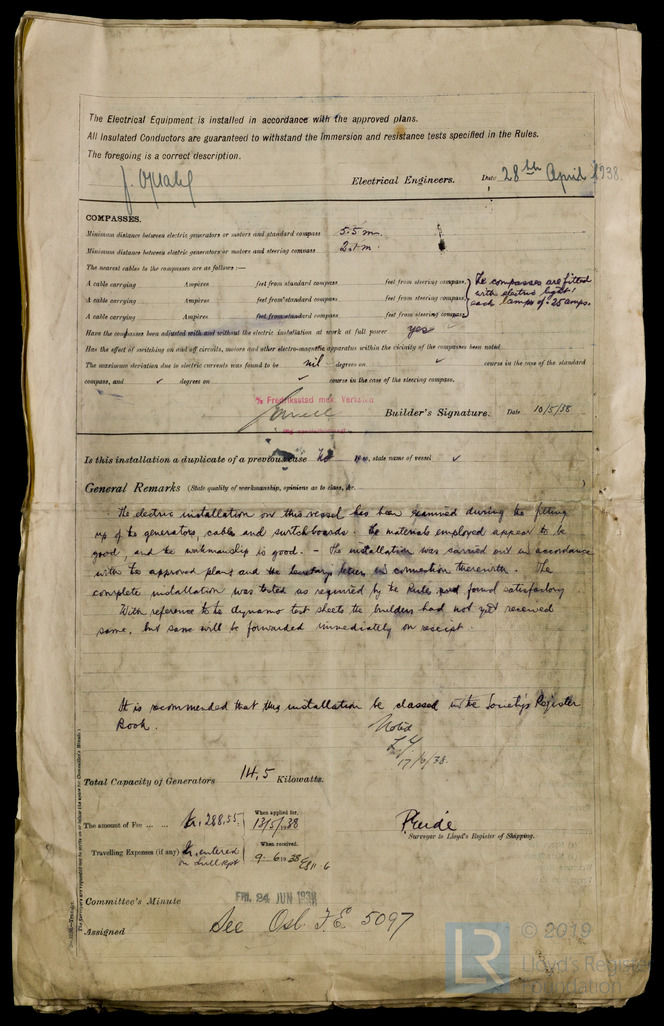 The Electrical Equipment is installed in accordance with the approved plans.
All Insulated Conductors are guaranteed to withstand the immersion and resistance tests specified in the Rules.
The foregoing is a correct description.
Electrical Engineers. Date 28th April 1938.
COMPASSES.
Minimum distance between electric generators or motors and standard compass 5.5 m.
Minimum distance between electric generators or motors and steering compass
The nearest cables to the compasses are as follows :—
A cable carrying Ampères feet from standard compass feet from steering compass. The compasses are fitted
A cable carrying Ampères feet from standard compass feet from steering compass. with electric light,
A cable carrying Ampères feet from standard compass feet from steering compass. each lamp of .25 amps.
Have the compasses been adjusted with and without the electric installation at work at full power yes
Has the effect of switching on and off circuits, motors and other electro-magnetic apparatus within the vicinity of the compasses been noted
The maximum deviation due to electric currents was found to be nil degrees on ✓ course in the case of the standard
compass, and ✓ degrees on ✓ course in the case of the steering compass.
Fredriksstad mek. Verksted
Builder's Signature. Date 10/5/38
Is this installation a duplicate of a previous case no If so, state name of vessel ✓
General Remarks (State quality of workmanship, opinions as to class, &c. )
The electric installation on this vessel has been examined during the fitting
up of the generators, cables and switchboards. The materials employed appear to be
good, and the workmanship is good. - The installation was carried out in accordance
with the approved plans and the Secretary's letters in connection therewith. The
complete installation was tested as required by the Rules and found satisfactory
With reference to the dynamo test sheets the builders had not yet received
same, but same will be forwarded immediately on receipt.
It is recommended that this installation be classed in the Society's Register
Book.
Noted
17/6/38.
Total Capacity of Generators 14,5 Kilowatts.
The amount of Fee ... ... Kr. 288.55. When applied for, 13/5/1938
Surveyor to Lloyd's Register of Shipping.
Travelling Expenses (if any) Kr. entered on hull rpt When received. 9.6.1938
Committee's Minute FRI. 24 JUN 1938
Assigned See Osl. F.E. 5097
LR
© 2019
Lloyd's Register
Foundation